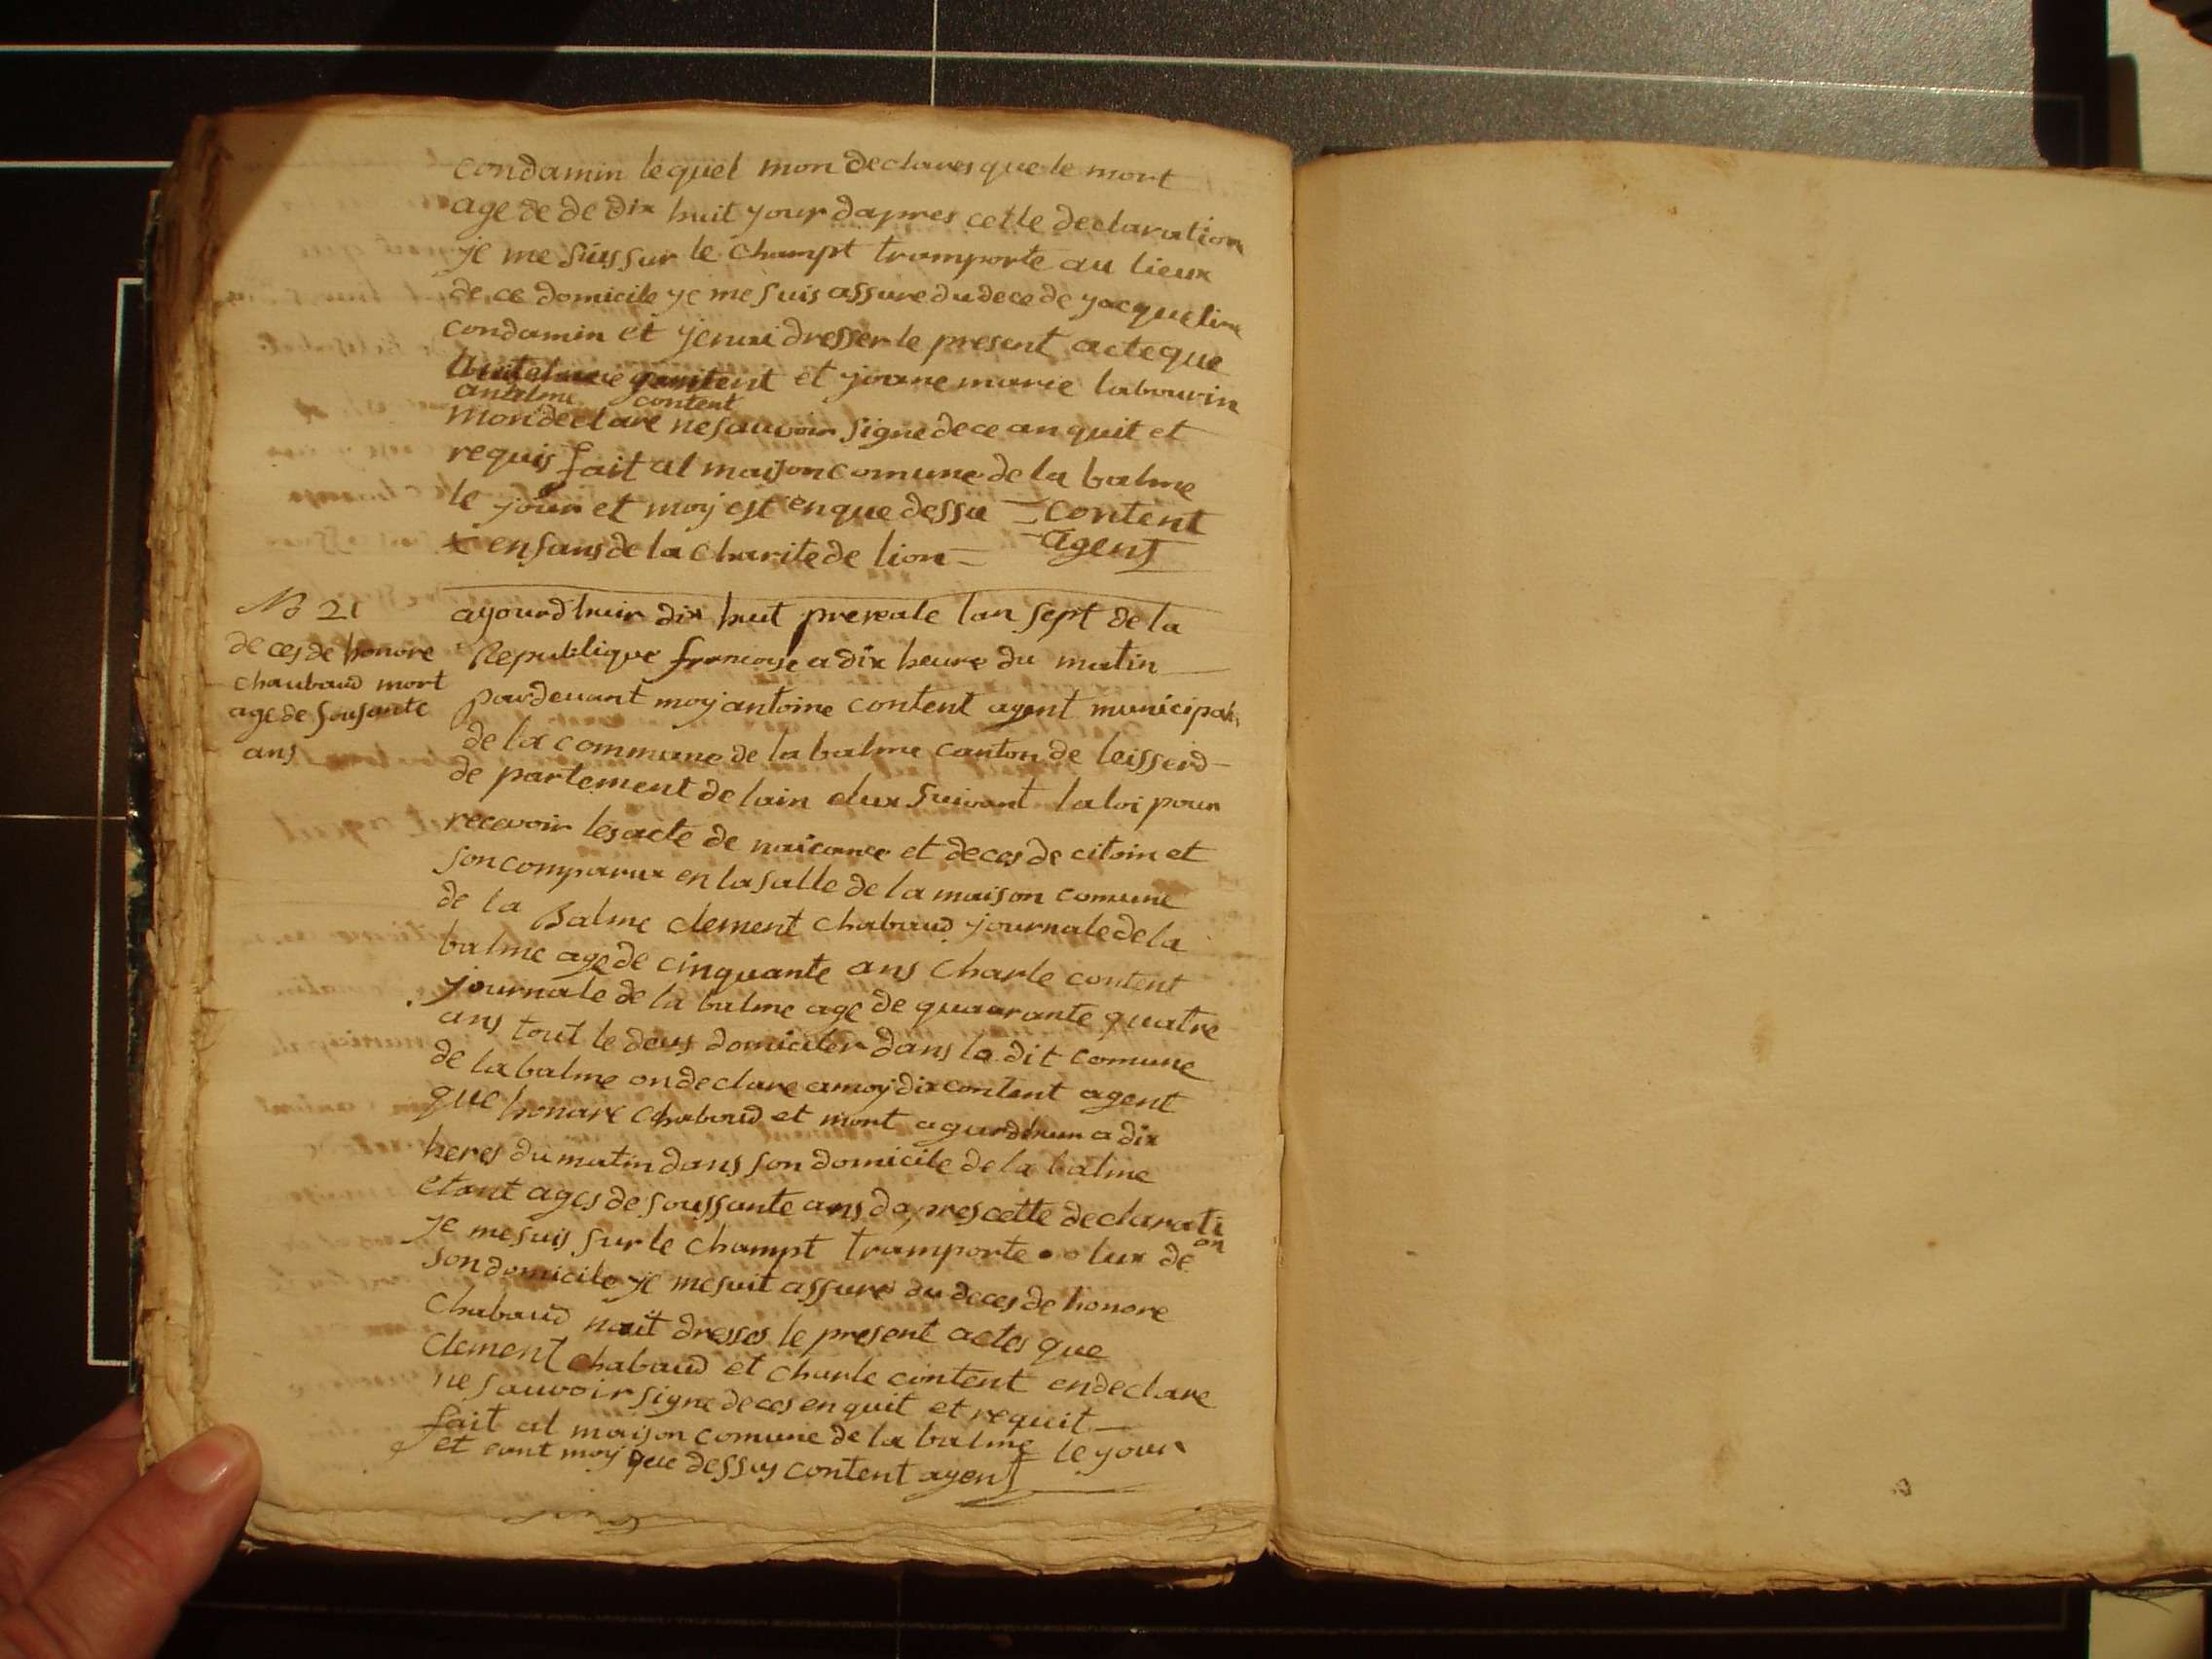 condamin lequel mon declares que le mort
age de de dix huit your dapres cette declaration
je me suis sur le champt tramporte au lieux
de ce domicile ye me suis assure du dece de yacqueline
condamin et yenai dresser le present acte que
et yoane marie labourin
antelme content
mon declare ne sauvoir signe de ce an quit et
requis fait al maison comune de la balme
le your et moy est en que dessu - content
agent
x enfans de la charite de lion -
No 21
deces de honore
chaubaud mort
age de sousante
ans
ayourdhuir dix huit prereale lan sept de la
Republique francoise a dix heure du matin
pardevant moy antoine content agent municipal
de la commune de la balme canton de leisserd
de partement de lain elux suivant la loi pour
recevoir les acte de naicance et deces de citoin et
son comparux en la salle de la maison comune
de la Balme clement chabaud journale de la
balme age de cinquante ans charle content
journale de la balme age de quaarante quatre
ans tout le deus domicilier dans la dit comune
de la balme on declare a moy dix content agent
que honare chabaud et mort agurdhuir a dix
heres du matin dans son domicile de la balme
etant ages de soussante ans dapres cette declarati
on
je me suis sur le champt tramporte lux de
son domicile ye me suit assure du deces de honore
chabaud nait dresses le present actes que
clement chabaud et charle content en declare
ne sauvoir signe de ces en quit et requit
fait al maison comune de la balme le your
et eant moy que dessus content agent